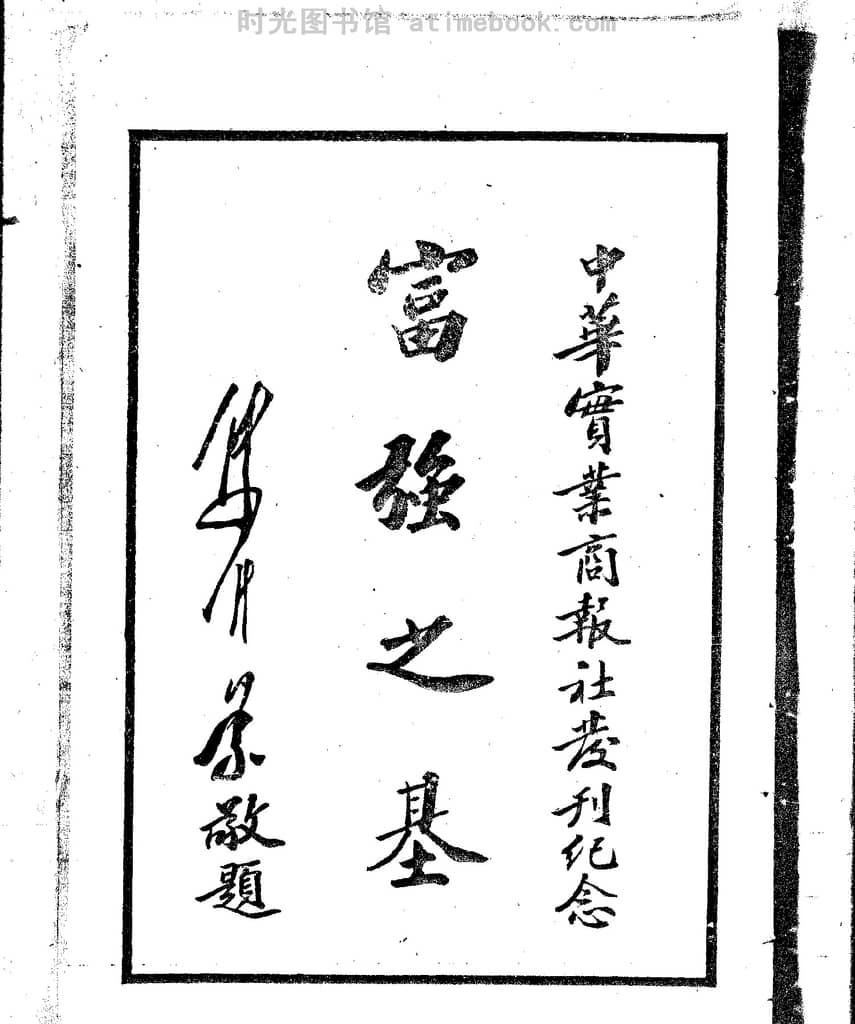 时光图书馆 atimebook.com
中華實業商報社發刊纪念
富強之基
敬題